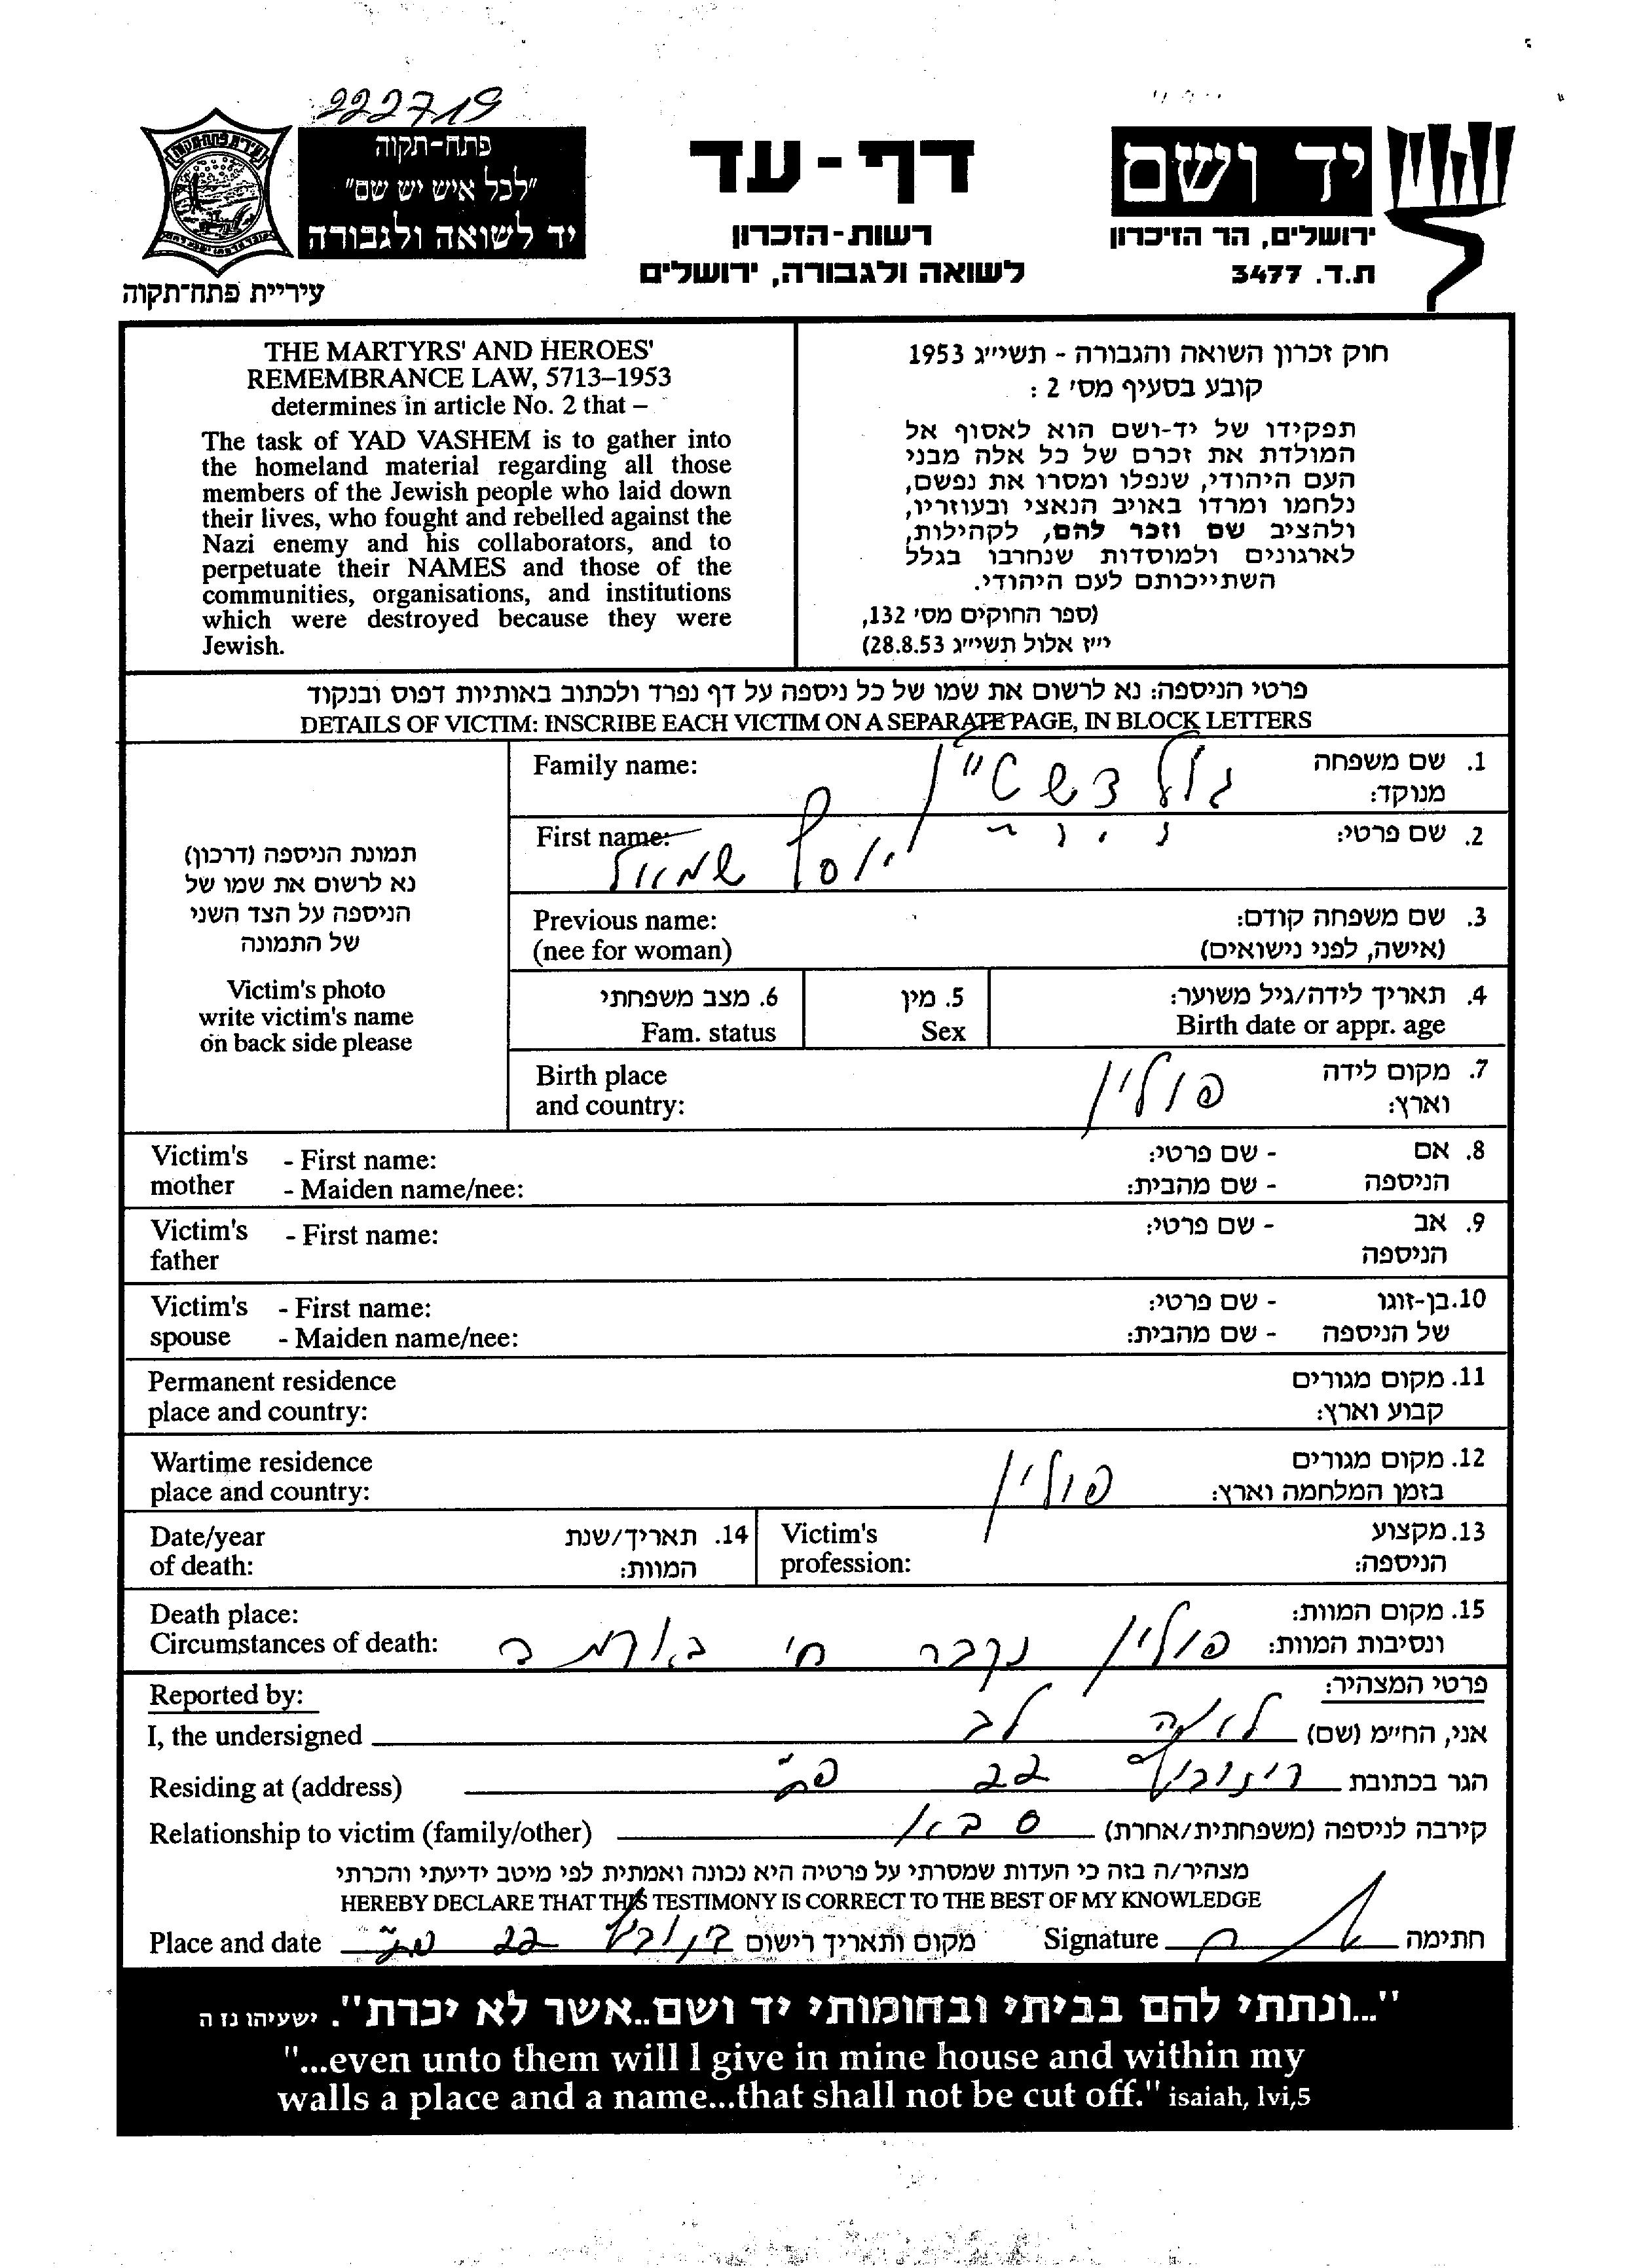 222719
פתח-תקוה
"לכל איש יש שם"
יד לשואה ולגבורה
עיריית פתח-תקוה
דף-עד
רשות-הזכרון
לשואה ולגבורה, ירושלים
יד ושם
ירושלים, הר הזיכרון
ת.ד. 3477
THE MARTYRS' AND HEROES'
REMEMBRANCE LAW, 5713–1953
determines in article No. 2 that –
The task of YAD VASHEM is to gather into
the homeland material regarding all those
members of the Jewish people who laid down
their lives, who fought and rebelled against the
Nazi enemy and his collaborators, and to
perpetuate their NAMES and those of the
communities, organisations, and institutions
which were destroyed because they were
Jewish.
חוק זכרון השואה והגבורה - תשי״ג 1953
קובע בסעיף מס׳ 2 :
תפקידו של יד-ושם הוא לאסוף אל
המולדת את זכרם של כל אלה מבני
העם היהודי, שנפלו ומסרו את נפשם,
נלחמו ומרדו באויב הנאצי ובעוזריו,
ולהציב שם וזכר להם, לקהילות,
לארגונים ולמוסדות שנחרבו בגלל
השתייכותם לעם היהודי.
(ספר החוקים מס׳ 132,
י״ז אלול תשי״ג 28.8.53)
פרטי הניספה: נא לרשום את שמו של כל ניספה על דף נפרד ולכתוב באותיות דפוס ובנקוד
DETAILS OF VICTIM: INSCRIBE EACH VICTIM ON A SEPARATE PAGE, IN BLOCK LETTERS
תמונת הניספה (דרכון)
נא לרשום את שמו של
הניספה על הצד השני
של התמונה
Victim's photo
write victim's name
on back side please
1. שם משפחה Family name:
מנוקד:
2. שם פרטי: יוסף שמואל First name:
3. שם משפחה קודם: Previous name:
(אישה, לפני נישואים) (nee for woman)
4. תאריך לידה/גיל משוער: 5. מין 6. מצב משפחתי
Birth date or appr. age Sex Fam. status
7. מקום לידה פולין Birth place
וארץ: and country:
8. אם - שם פרטי: Victim's - First name:
הניספה - שם מהבית: mother - Maiden name/nee:
9. אב - שם פרטי: Victim's - First name:
הניספה father
10. בן-זוגו - שם פרטי: Victim's - First name:
של הניספה - שם מהבית: spouse - Maiden name/nee:
11. מקום מגורים Permanent residence
קבוע וארץ: place and country:
12. מקום מגורים פולין Wartime residence
בזמן המלחמה וארץ: place and country:
13. מקצוע Victim's 14. תאריך/שנת Date/year
הניספה: profession: המוות: of death:
15. מקום המוות: Death place:
ונסיבות המוות: פולין נקבר חי באדמה Circumstances of death:
פרטי המצהיר: Reported by:
אני, הח״מ (שם) לאה לב I, the undersigned
הגר בכתובת 22 פ״ת Residing at (address)
קירבה לניספה (משפחתית/אחרת) סבא Relationship to victim (family/other)
מצהיר/ה בזה כי העדות שמסרתי על פרטיה היא נכונה ואמתית לפי מיטב ידיעתי והכרתי
HEREBY DECLARE THAT THIS TESTIMONY IS CORRECT TO THE BEST OF MY KNOWLEDGE
חתימה Signature מקום ותאריך רישום 22 Place and date
"...ונתתי להם בביתי ובחומותי יד ושם..אשר לא יכרת". ישעיהו נז ה
"...even unto them will I give in mine house and within my
walls a place and a name...that shall not be cut off." isaiah, lvi,5